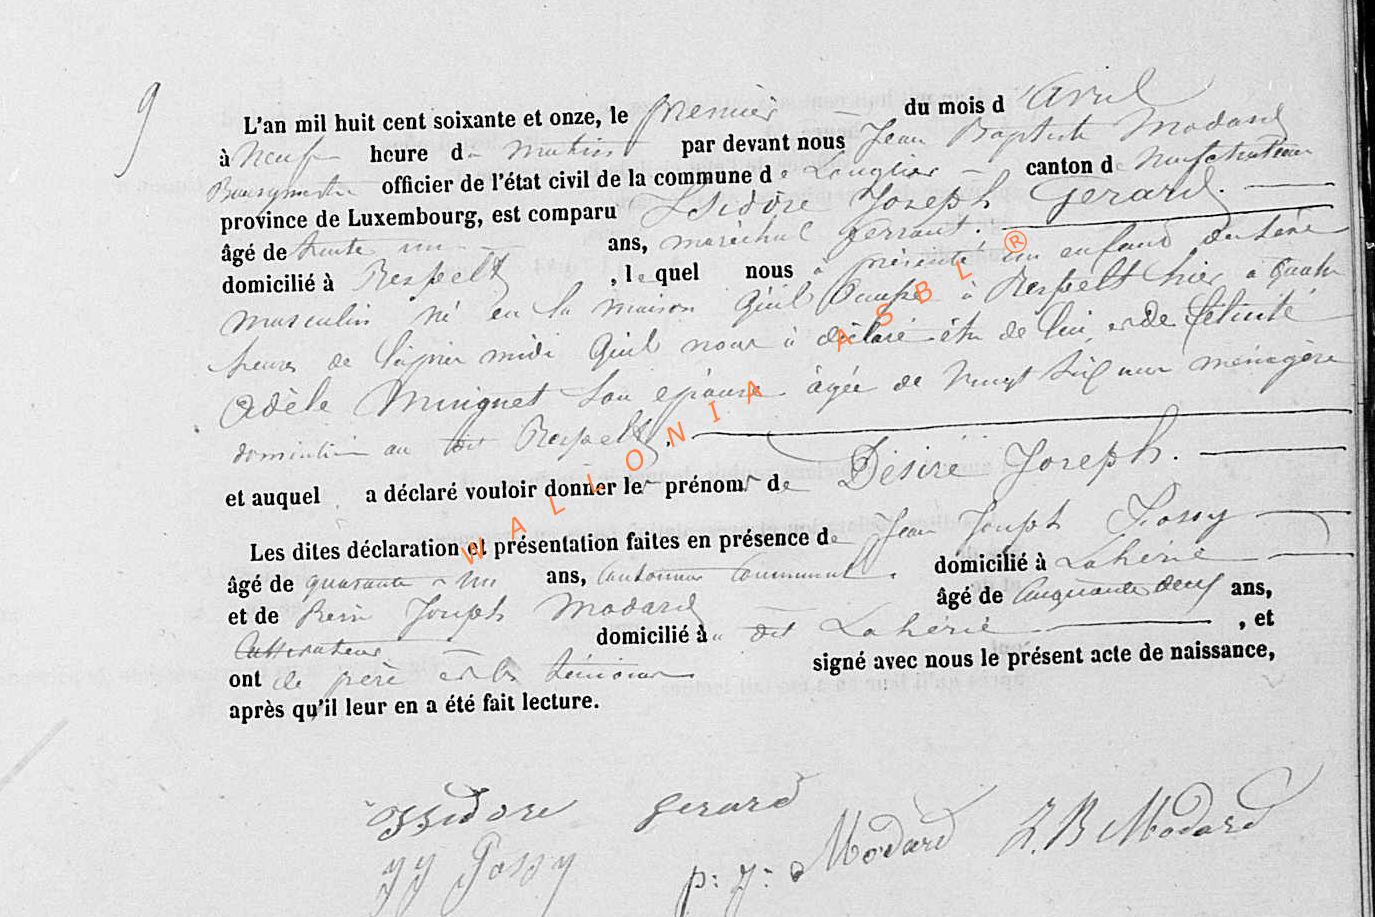 9
L'an mil huit cent soixante et onze, le premier du mois d'Avril
à neuf heure du matin par devant nous Jean Baptiste Modard
Bourgmestre officier de l'état civil de la commune de Longlier canton de Neufchateau
province de Luxembourg, est comparu Isidore Joseph Gerard.
âgé de trente un ans, maréchal ferrant.
domicilié à Respelt, lequel nous a présenté un enfant du sexe
masculin né en la maison qu'il occupe à Respelt hier à quatre
heures de l'après midi qu'il nous a déclaré être de lui et de
Adèle Minguet son épouse âgée de vingt six ans ménagère
domiciliée au dit Respelt.
et auquel a déclaré vouloir donner les prénoms de Désiré Joseph.
Les dites déclaration et présentation faites en présence de Jean Joseph
âgé de quarante un ans, cantonnier communal. domicilié à Lahérie
et de Joseph Modard âgé de cinquante deux ans,
Cultivateur domicilié au dit Lahérie, et
ont le père et les témoins signé avec nous le présent acte de naissance,
après qu'il leur en a été fait lecture.
Isidore gerard
JJ p: j: Modard J. B Modard
WALLONIA ASBL ®